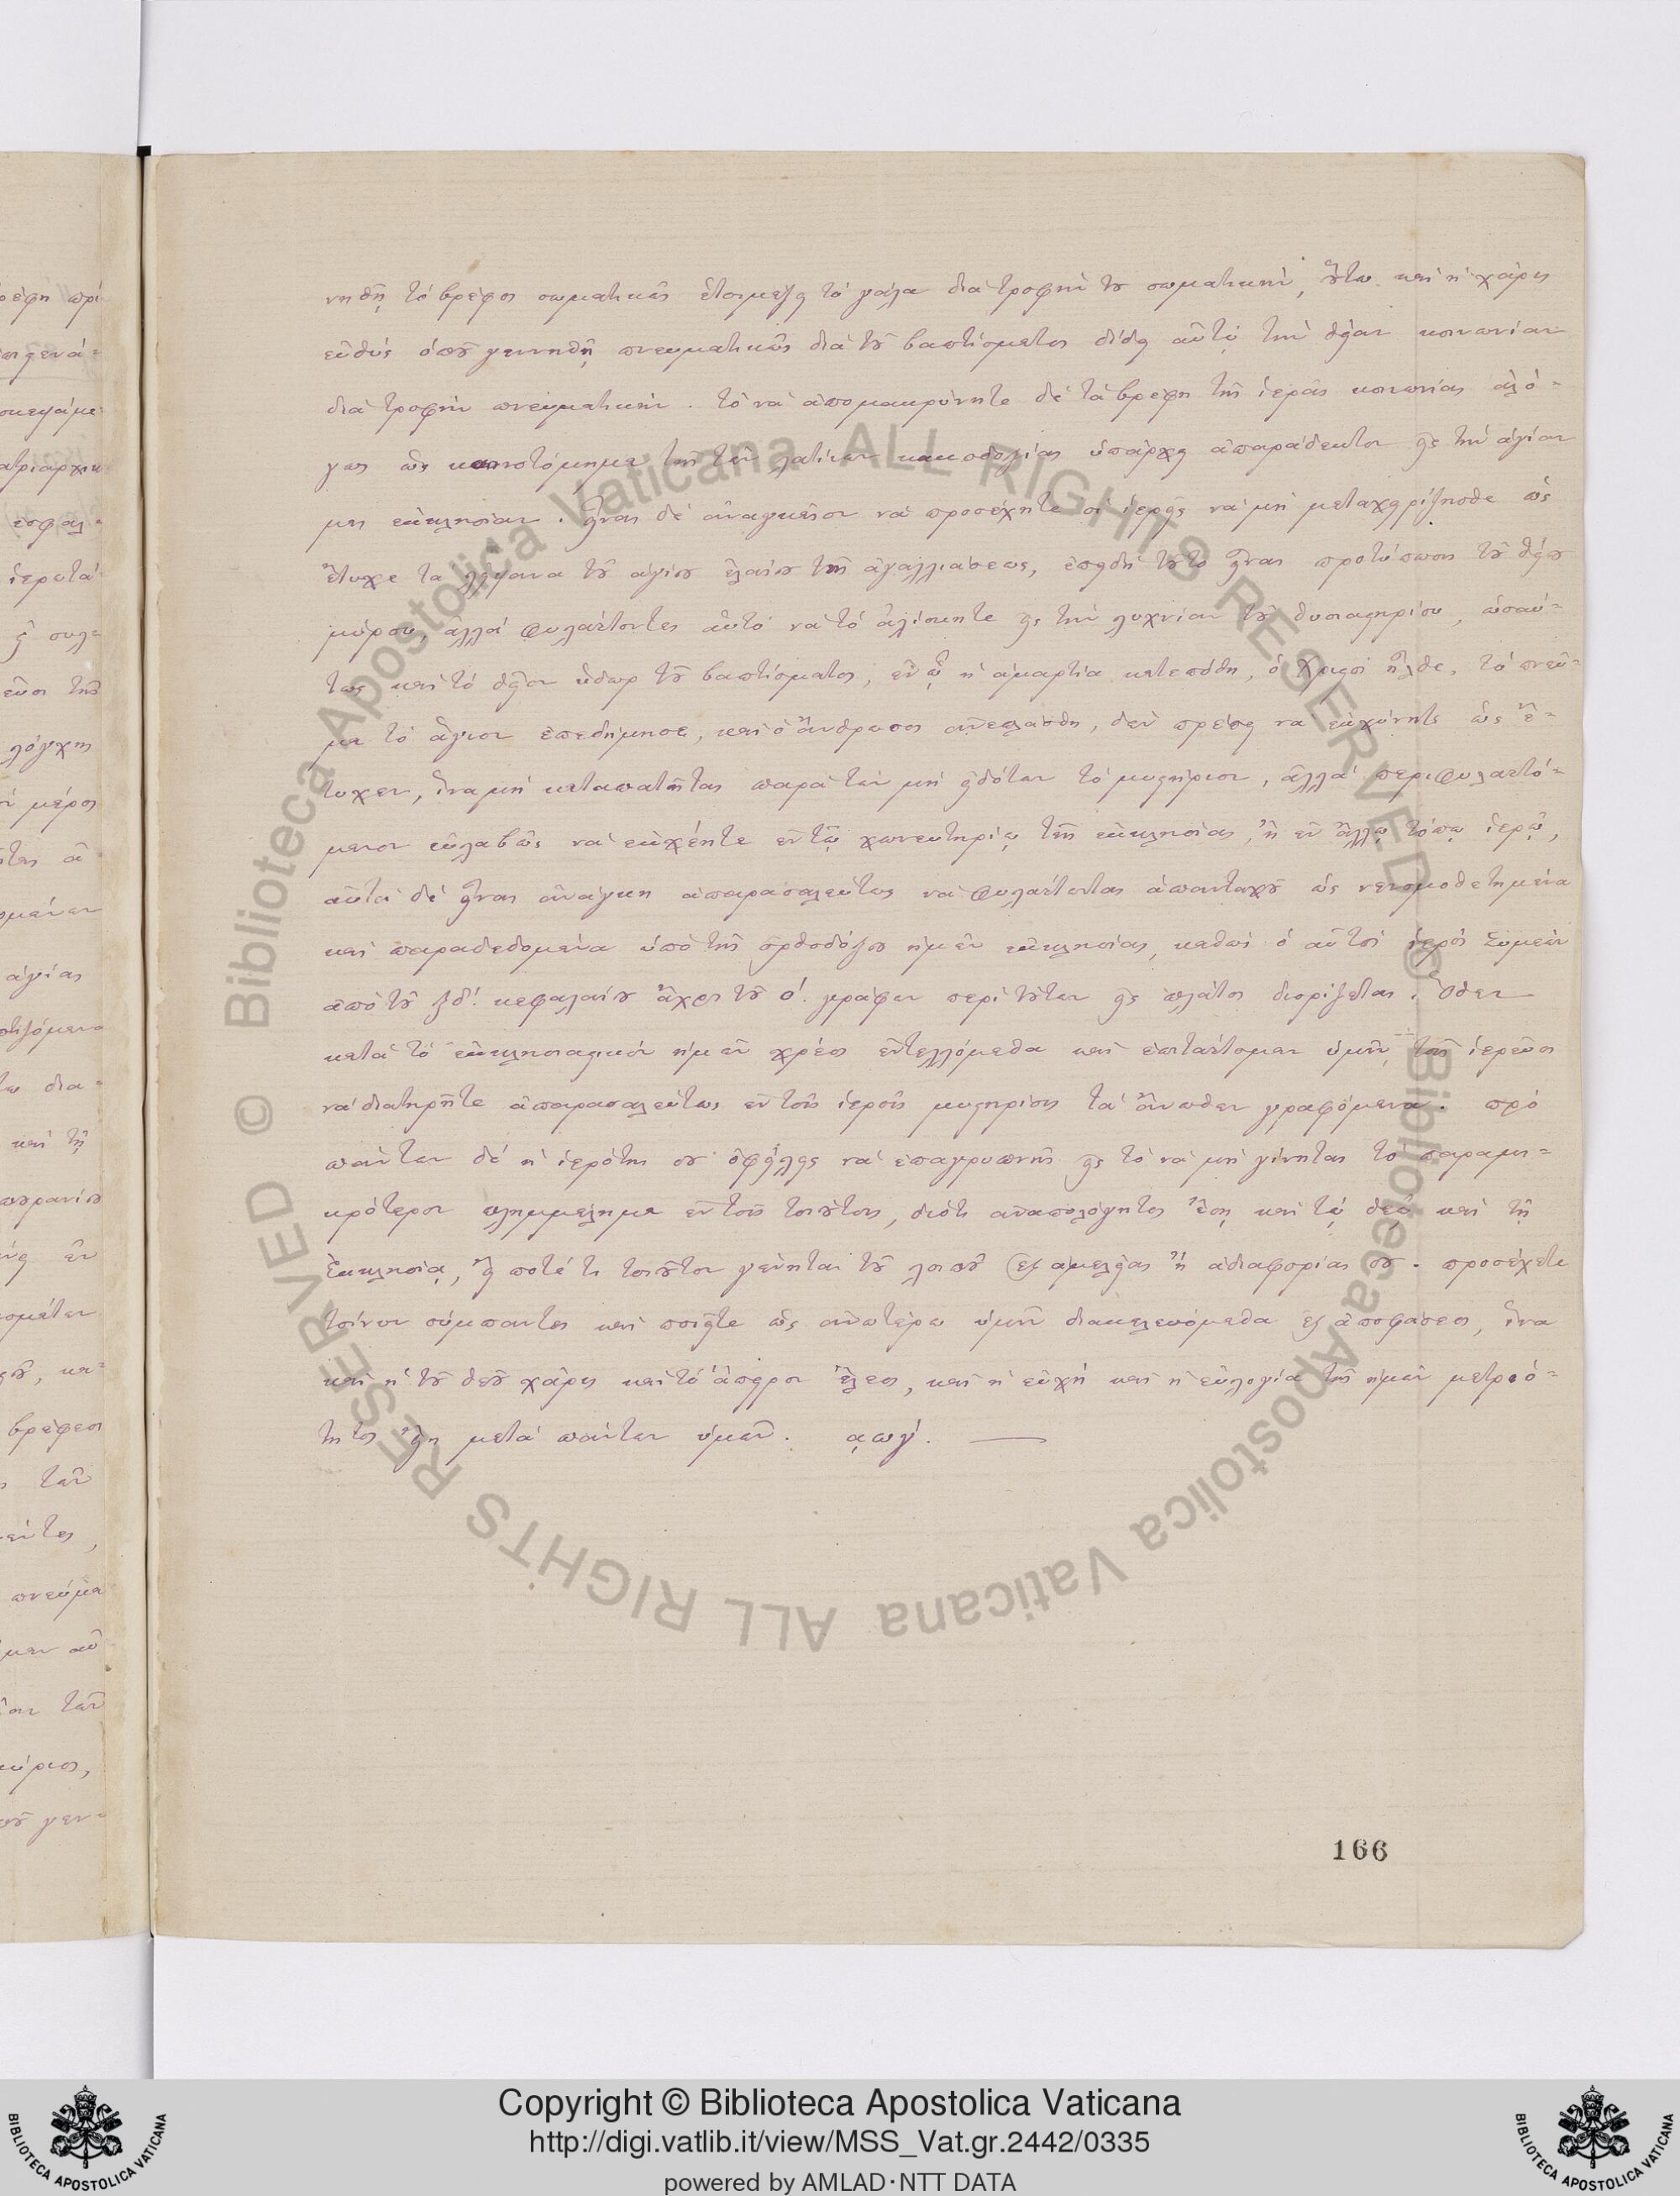 νηθῇ τὸ βρέφος σωματικῶς ἑτοιμάζει τὸ γάλα διὰ τροφήν του σωματικήν, οὕτω καὶ ἡ χάρις
εὐθὺς ὁποῦ γεννηθῇ πνευματικῶς διὰ τοῦ βαπτίσματος δίδει αὐτῷ τὴν θείαν κοινωνίαν
διὰ τροφὴν πνευματικήν. τὸ νὰ ἀπομακρύνητε δὲ τὰ βρέφη τῆς ἱερᾶς κοινωνίας ἀλό-
γως ὡς καινοτόμημα τῆς τῶν λατίνων κακοδοξίας ὑπάρχει ἀπαράδεκτον εἰς τὴν ἁγίαν
μας ἐκκλησίαν. εἶναι δὲ ἀναγκαῖον νὰ προσέχητε οἱ ἱερεῖς νὰ μὴ μεταχειρίζησθε ὡς
ἔτυχε τὰ λείψανα τοῦ ἁγίου ἐλαίου τῆς ἀγαλλιάσεως, ἐπειδὴ τοῦτο εἶναι προτύπωσις τοῦ θείου
μύρου, ἀλλὰ φυλάττοντες αὐτὸ νὰ τὸ ἀλίσκητε εἰς τὴν λυχνίαν τοῦ θυσιαστηρίου, ὡσαύ-
τως καὶ τὸ θεῖον ὕδωρ τοῦ βαπτίσματος, ἐν ᾧ ἡ ἁμαρτία κατεπόθη, ὁ Χριστὸς ἦλθε, τὸ πνεῦ-
μα τὸ ἅγιον ἐπεδήμησε, καὶ ὁ ἄνθρωπος ἀνεπλάσθη, δὲν πρέπει νὰ ἐκχύνητε ὡς ἔ-
τυχεν, ἵνα μὴ καταπατῆται παρὰ τῶν μὴ εἰδότων τὸ μυστήριον, ἀλλὰ περιφυλαττό-
μενον εὐλαβῶς νὰ ἐκχέητε ἐν τῷ χωνευτηρίῳ τῆς ἐκκλησίας, ἢ ἐν ἄλλῳ τόπῳ ἱερῷ,
αὐτὰ δὲ εἶναι ἀνάγκη ἀπαρασαλεύτως νὰ φυλάττωνται ἁπανταχοῦ ὡς νενομοθετημένα
καὶ παραδεδομένα ὑπὸ τῆς ὀρθοδόξου ἡμῶν ἐκκλησίας, καθὼς ὁ αὐτὸς ἱερὸς Συμεὼν
ἀπὸ τοῦ ξδ΄. κεφαλαίου ἄχρι τοῦ ο΄. γράφων περὶ τούτων εἰς πλάτος διορίζεται. Ὅθεν
κατὰ τὸ ἐκκλησιαστικὸν ἡμῶν χρέος ἐντελλόμεθα καὶ ἐπιτάττομεν ὑμῖν τοῖς ἱερεῦσι
νὰ διατηρῆτε ἀπαρασαλεύτως ἐν τοῖς ἱεροῖς μυστηρίοις τὰ ἄνωθεν γραφόμενα. πρὸ
πάντων δὲ ἡ ἱερότης σου ὀφείλεις νὰ ἐπαγρυπνῇς εἰς τὸ νὰ μὴ γίνηται τὸ παραμι-
κρότερον πλημμέλημα ἐν τοῖς τοιούτοις, διότι ἀναπολόγητος ἔσῃ καὶ τῷ θεῷ καὶ τῇ
Ἐκκλησίᾳ, εἴ ποτέ τι τοιοῦτον γένηται τοῦ λοιποῦ ἐξ ἀμελείας ἢ ἀδιαφορίας σου. προσέχετε
τοίνυν σύμπαντες καὶ ποιεῖτε ὡς ἀνωτέρω ὑμῖν διακελευόμεθα ἐξ ἀποφάσεως, ἵνα
καὶ ἡ τοῦ θεοῦ χάρις καὶ τὸ ἄπειρον ἔλεος, καὶ ἡ εὐχὴ καὶ ἡ εὐλογία τῆς ἡμῶν μετριό-
τητος εἴη μετὰ πάντων ὑμῶν. ͵αωγ΄.
166
Copyright © Biblioteca Apostolica Vaticana
http://digi.vatlib.it/view/MSS_Vat.gr.2442/0335
powered by AMLAD·NTT DATA